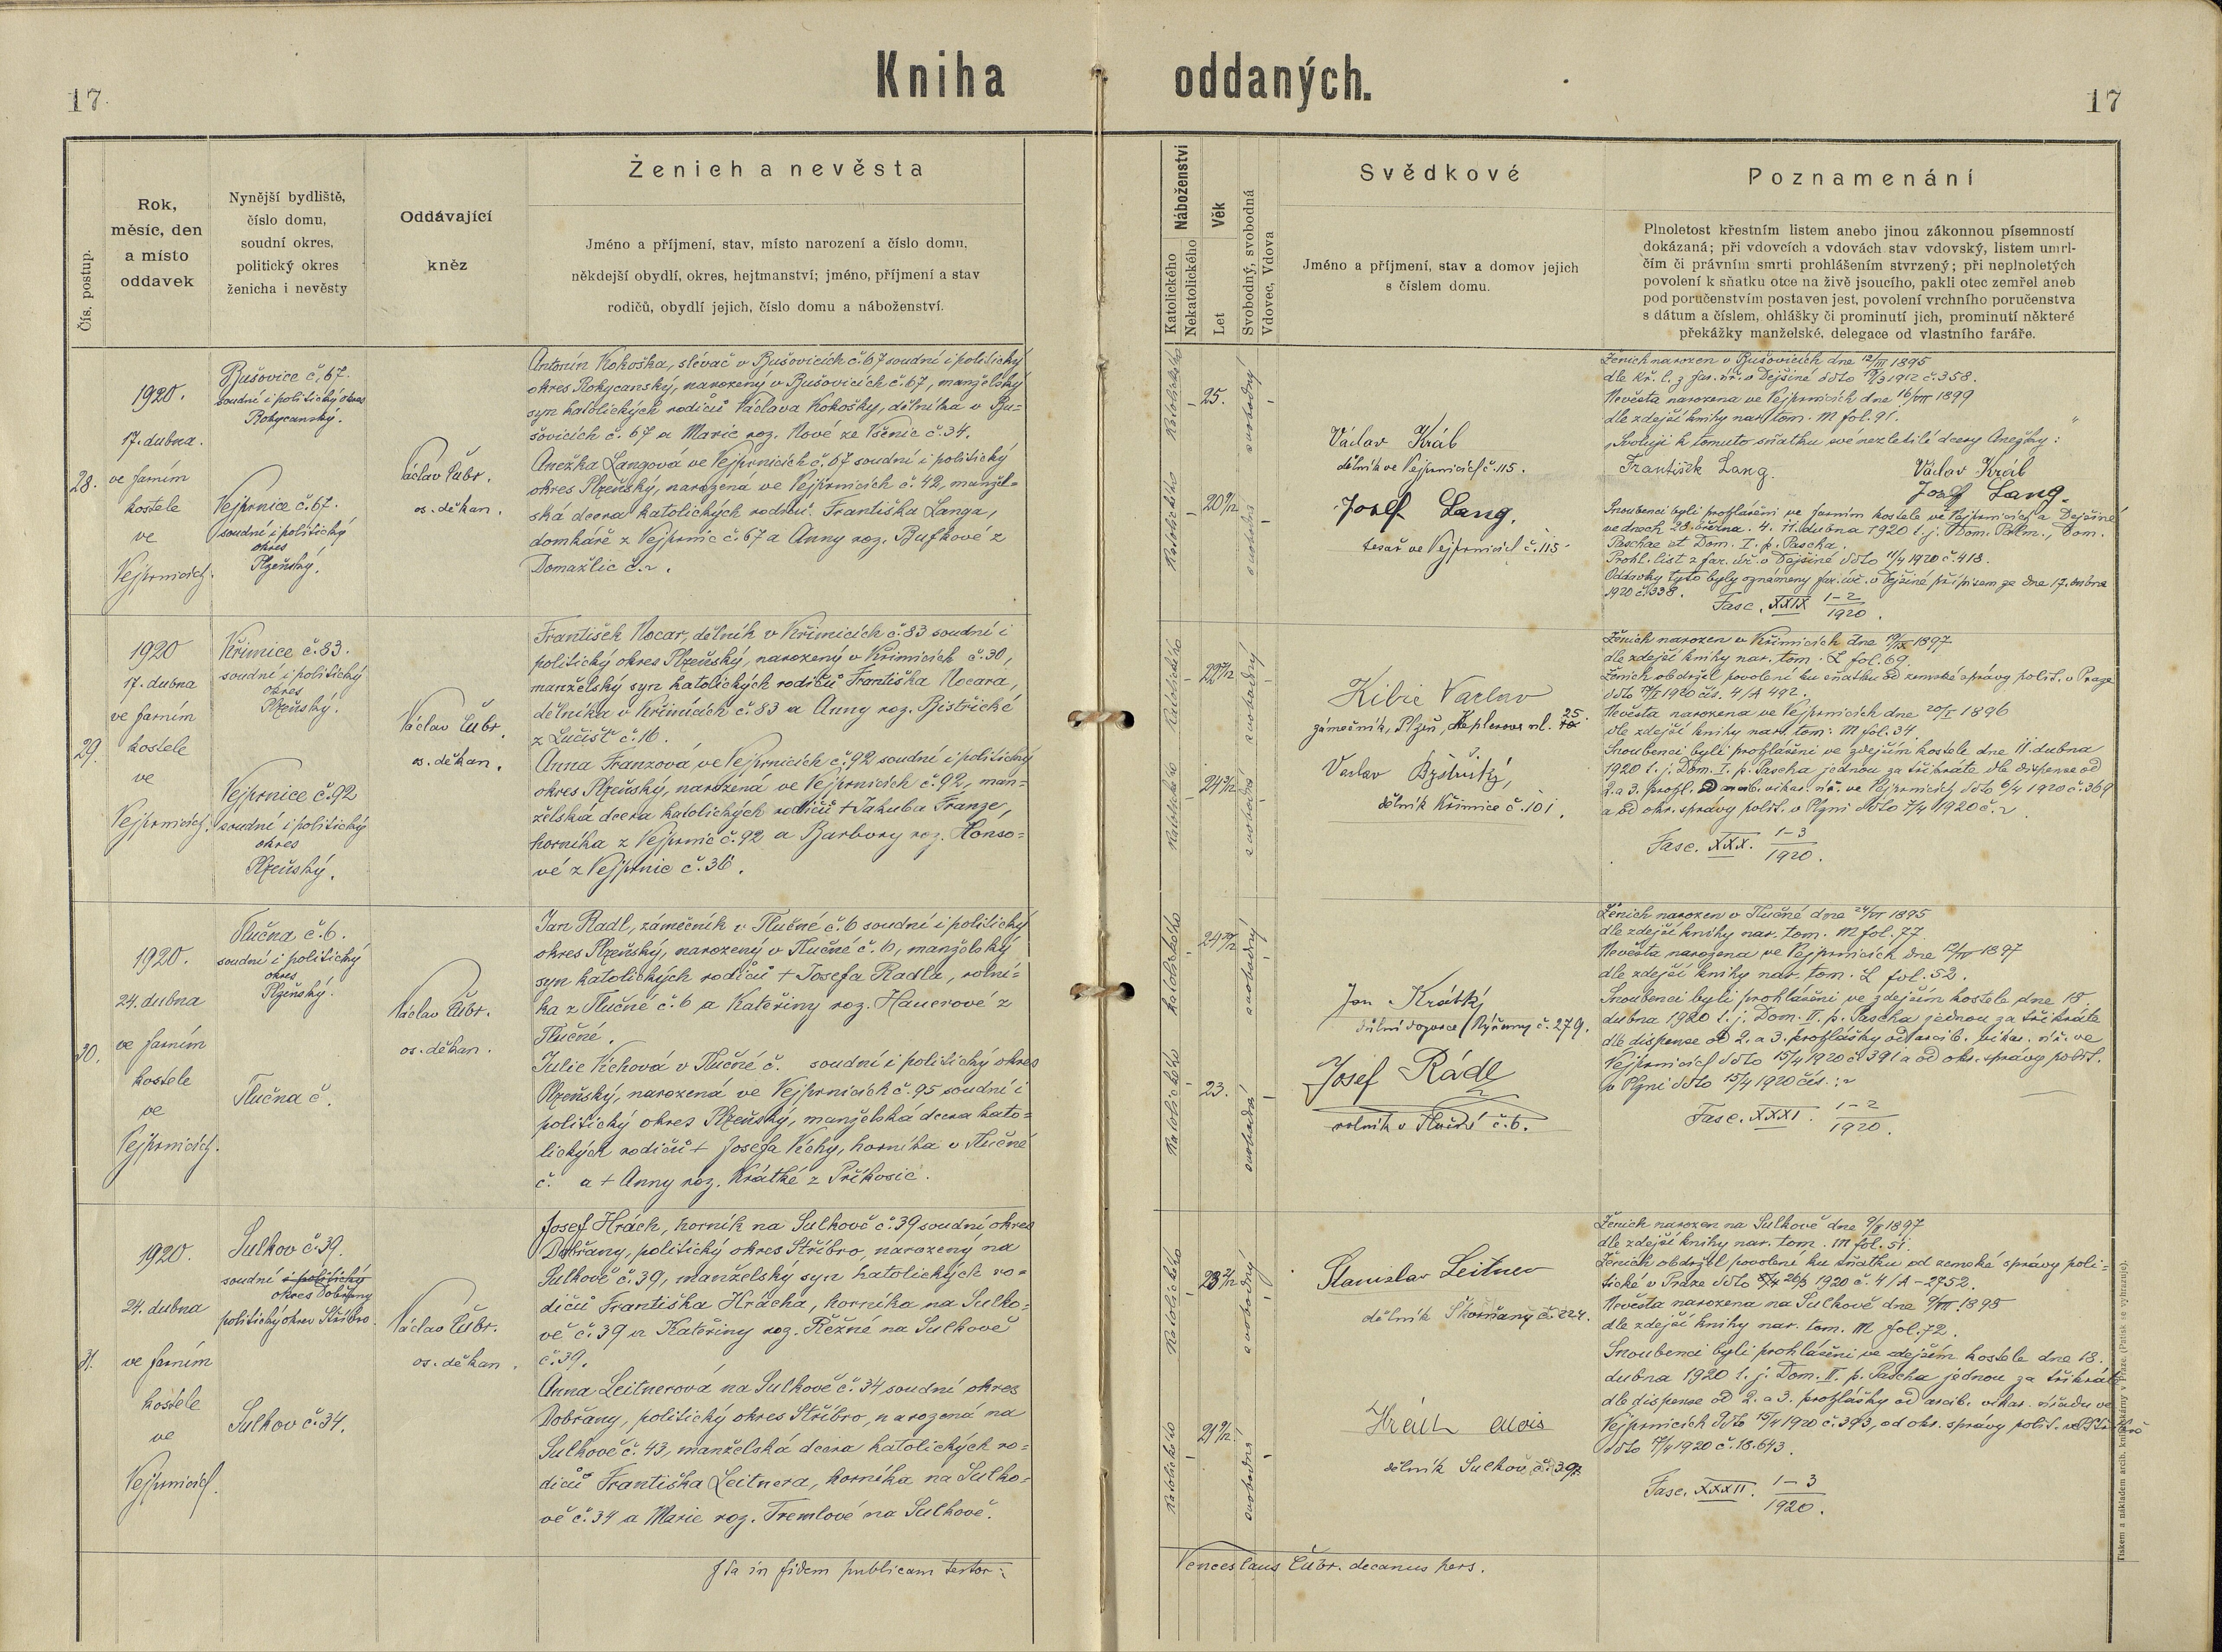 17.
Kniha oddaných.
17
Čís. postup.
Rok,
měsíc, den
a místo
oddavek
Nynější bydliště,
číslo domu,
soudní okres,
politický okres
ženicha i nevěsty
Oddávající
kněz
Ženich a nevěsta
Jméno a příjmení, stav, místo narození a číslo domu,
někdejší obydlí, okres, hejtmanství; jméno, příjmení a stav
rodičů, obydlí jejich, číslo domu a náboženství.
Náboženství
Katolického
Nekatolického
Věk
Let
Svobodný, svobodná
Vdovec, Vdova
Svědkové
Jméno a příjmení, stav a domov jejich
s číslem domu.
Poznamenání
Plnoletost křestním listem anebo jinou zákonnou písemností
dokázaná; při vdovcích a vdovách stav vdovský, listem umrl-
čím či právním smrti prohlášením stvrzený; při neplnoletých
povolení k sňatku otce na živě jsoucího, pakli otec zemřel aneb
pod poručenstvím postaven jest, povolení vrchního poručenstva
s dátum a číslem, ohlášky či prominutí jich, prominutí některé
překážky manželské, delegace od vlastního faráře.
28.
1920.
17. dubna.
ve farním
kostele
ve
Vejprnicích.
Bušovice č. 67.
soudní i politický okres
Rokycanský.
Vejprnice č. 67.
soudní i politický
okres
Plzeňský.
Václav Čubr.
os. děkan.
Antonín Kokoška, slévač v Bušovicích č. 67 soudní i politický
okres Rokycanský, narozený v Bušovicích č. 67, manželský
syn katolických rodičů Václava Kokošky, dělníka v Bu-
šovicích č. 67 a Marie roz. Nové ze Všenic č. 34.
Anežka Langová ve Vejprnicích č. 67 soudní i politický
okres Plzeňský, narozená ve Vejprnicích č. 42, manžel-
ská dcera katolických rodičů Františka Langa,
domkaře z Vejprnic č. 67 a Anny roz. Bufkové z
Domažlic č. ~.
Katolického
25.
svobodný
Katolického
20 9/12
svobodná
Václav Král
dělník ve Vejprnicích č. 115.
Josef Lang.
tesař ve Vejprnicích č. 115
Ženich narozen v Bušovicích dne 12/III 1895
dle kř. l. z far. úř. v Dejšině ddto 19/3 1912 č. 358.
Nevěsta narozena ve Vejprnicích dne 16/VII 1899
dle zdejší knihy nar. tom. M fol. 91.
„Svoluji k tomuto sňatku své nezletilé dcery Anežky:"
František Lang. Václav Král
Josef Lang.
Snoubenci byli prohlášeni ve farním kostele ve Vejprnicích a Dejšině
ve dnech 28. března. 4. 11. dubna 1920 t. j. Dom. Palm., Dom.
Paschae et Dom. I. p. Pascha.
Prohl. list z far. úř. v Dejšině ddto 11/4 1920 č. 418.
Oddavky tyto byly oznámeny far. úř. v Dejšině přípisem ze dne 17. dubna
1920 č. 338. Fasc. XXIX 1-2
1920.
29.
1920
17. dubna
ve farním
kostele
ve
Vejprnicích.
Křimice č. 83.
soudní i politický
okres
Plzeňský.
Vejprnice č. 92
soudní i politický
okres
Plzeňský.
Václav Čubr.
os. děkan.
František Nocar, dělník v Křimicích č. 83 soudní i
politický okres Plzeňský, narozený v Křimicích č. 30,
manželský syn katolických rodičů Františka Nocara,
dělníka v Křimicích č. 83 a Anny roz. Bistřické
z Lučišť č. 16.
Anna Franzová, ve Vejprnicích č. 92 soudní i politický
okres Plzeňský, narozená ve Vejprnicích č. 92, man-
želská dcera katolických rodičů + Jakuba Franze,
horníka z Vejprnic č. 92 a Barbory roz. Honso-
vé z Vejprnic č. 36.
Katolického
22 7/12
svobodný
Katolického
24 3/12
svobodná
Kibic Vaclav
zámečník, Plzeň, Keplerova ul. 25.
Vaclav Bystřický,
dělník Křimice č. 101.
Ženich narozen v Křimicích dne 19/IX 1897
dle zdejší knihy nar. tom. L fol. 69.
Ženich obdržel povolení ku sňatku od zemské správy polit. v Praze
čís. 4/A 492.
Nevěsta narozena ve Vejprnicích dne 20/I 1896
dle zdejší knihy nar. tom: M fol. 34.
Snoubenci byli prohlášeni ve zdejším kostele dne 11. dubna
1920 t. j. Dom. I. p. Pascha jednou za třikráte dle dispense od
2. a 3. prohl. od arcib. vikar. úř. ve Vejprnicích ddto 6/4 1920 č. 369
a od okr. správy polit. v Plzni ddto 7/4 1920 č. ~.
Fasc. XXX. 1-3
1920.
30.
1920.
24. dubna
ve farním
kostele
ve
Vejprnicích.
Tlučna č. 6.
soudní i politický
okres
Plzeňský.
Tlučna č.
Václav Čubr.
os. děkan.
Jan Radl, zámečník v Tlučné č. 6 soudní i politický
okres Plzeňský, narozený v Tlučné č. 6, manželský
syn katolických rodičů + Josefa Radla, rolní-
ka z Tlučné č. 6 a Kateřiny roz. Hauerové z
Tlučné.
Julie Víchová v Tlučné č. soudní i politický okres
Plzeňský, narozená ve Vejprnicích č. 95 soudní i
politický okres Plzeňský, manželská dcera kato-
lických rodičů + Josefa Víchy, horníka v Tlučné
č. a + Anny roz. Krátké z Příkosic.
Katolického
24 10/12
svobodný
Katolického
23.
svobodná
Jan Krátký
důlní dozorce (Nýřany č. 279.
Josef Rádl
rolník v Tlučné č. 6.
Ženich narozen v Tlučné dne 24/VI 1895
dle zdejší knihy nar. tom. M fol. 77.
Nevěsta narozena ve Vejprnicích dne 12/IV 1897
dle zdejší knihy nar. tom. L fol. 52.
Snoubenci byli prohlášeni ve zdejším kostele dne 18.
dubna 1920 t. j. Dom. II. p. Pascha jednou za třikráte
dle dispense od 2. a 3. prohlášky od arcib. vikar. úř. ve
Vejprnicích ddto 15/4 1920 č. 391 a od okr. správy polit.
v Plzni ddto 15/4 1920 čís. : ~
Fasc. XXXI. 1-2
1920.
31.
1920.
24. dubna
ve farním
kostele
ve
Vejprnicích.
Sulkov č. 39.
soudní i politický
okres Dobřany
politický okres Stříbro
Sulkov č. 34.
Václav Čubr.
os. děkan.
Josef Hrách, horník na Sulkově č. 39 soudní okres
Dobřany, politický okres Stříbro, narozený na
Sulkově č. 39, manželský syn katolických ro-
dičů Františka Hrácha, horníka na Sulko-
vě č. 39 a Kateřiny roz. Řežné na Sulkově
č. 39.
Anna Leitnerová na Sulkově č. 34 soudní okres
Dobřany, politický okres Stříbro, narozená na
Sulkově č. 43, manželská dcera katolických ro-
dičů Františka Leitnera, horníka na Sulko-
vě č. 34 a Marie roz. Tremlové na Sulkově.
Katolického
23 2/12
svobodný
Katolického
21 9/12
svobodná
Stanislav Leitner
dělník Skvrňany č. 224.
Hrách Alois
dělník Sulkov č. 39
Ženich narozen na Sulkově dne 9/II 1897
dle zdejší knihy nar. tom. M fol. 51.
Ženich obdržel povolení ku sňatku od zemské správy poli-
tické v Praze ddto 26/3 1920 č. 4/A - 2752.
Nevěsta narozena na Sulkově dne 9/VII 1898
dle zdejší knihy nar. tom. M fol. 72.
Snoubenci byli prohlášeni ve zdejším kostele dne 18.
dubna 1920 t. j. Dom. II. p. Pascha jednou za třikrát
dle dispense od 2. a 3. prohlášky od arcib. vikar. úřadu ve
Vejprnicích ddto 15/4 1920 č. 393, od okr. správy polit. ve Stříbře
ddto 17/4 1920 č. 18.643.
Fasc. XXXII. 1-3
1920.
Ita in fidem publicam testor:
Venceslaus Čubr. decanus pers.
Tiskem a nákladem arcib. knihtiskárny v Praze. (Patisk se vyhrazuje).